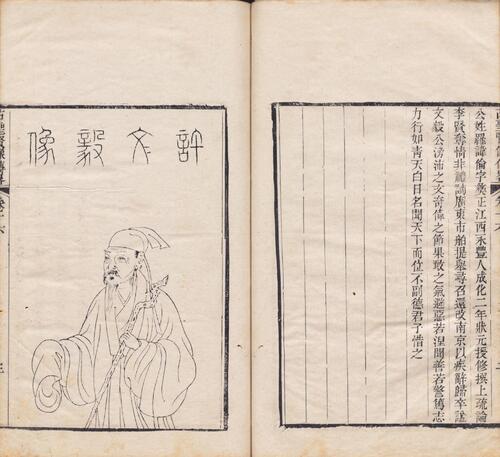 公姓羅諱倫字彝正江西永豐人成化二年狀元授修撰上疏論
李賢奪情非禮謫廣東市舶提舉尋召還改南京以疾辭歸卒諡
文毅公滂沛之文奇偉之節果敢之氣避惡若涅聞善若警篤志
力行如青天白日名聞天下而位不副德君子惜之
許文毅像